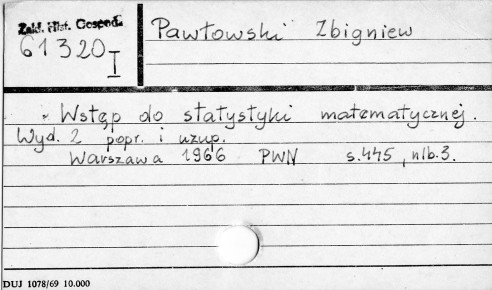 Zakł. Hist. Gospod.
61320
I
Pawłowski Zbigniew
Wstęp do statystyki matematycznej.
Wyd. 2 popr. i uzup.
Warszawa 1966 PWN s.445, nlb.3.
DUJ 1078/69 10.000